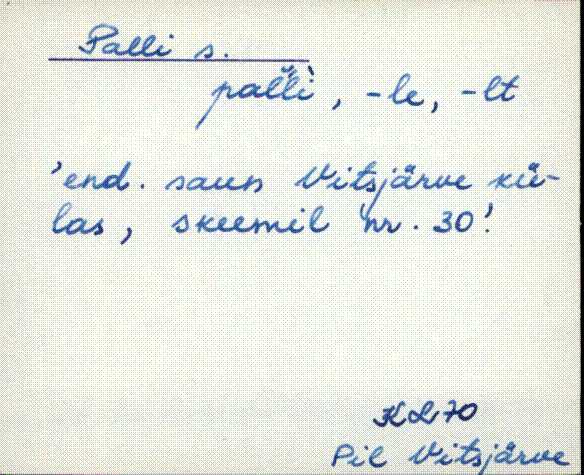 Palli s.
pal̆l̆i̇̀, -le, -lt
'end. saun Vitsjärve kü-
las, skeemil nr. 30'
KL 70
Pil Vitsjärve